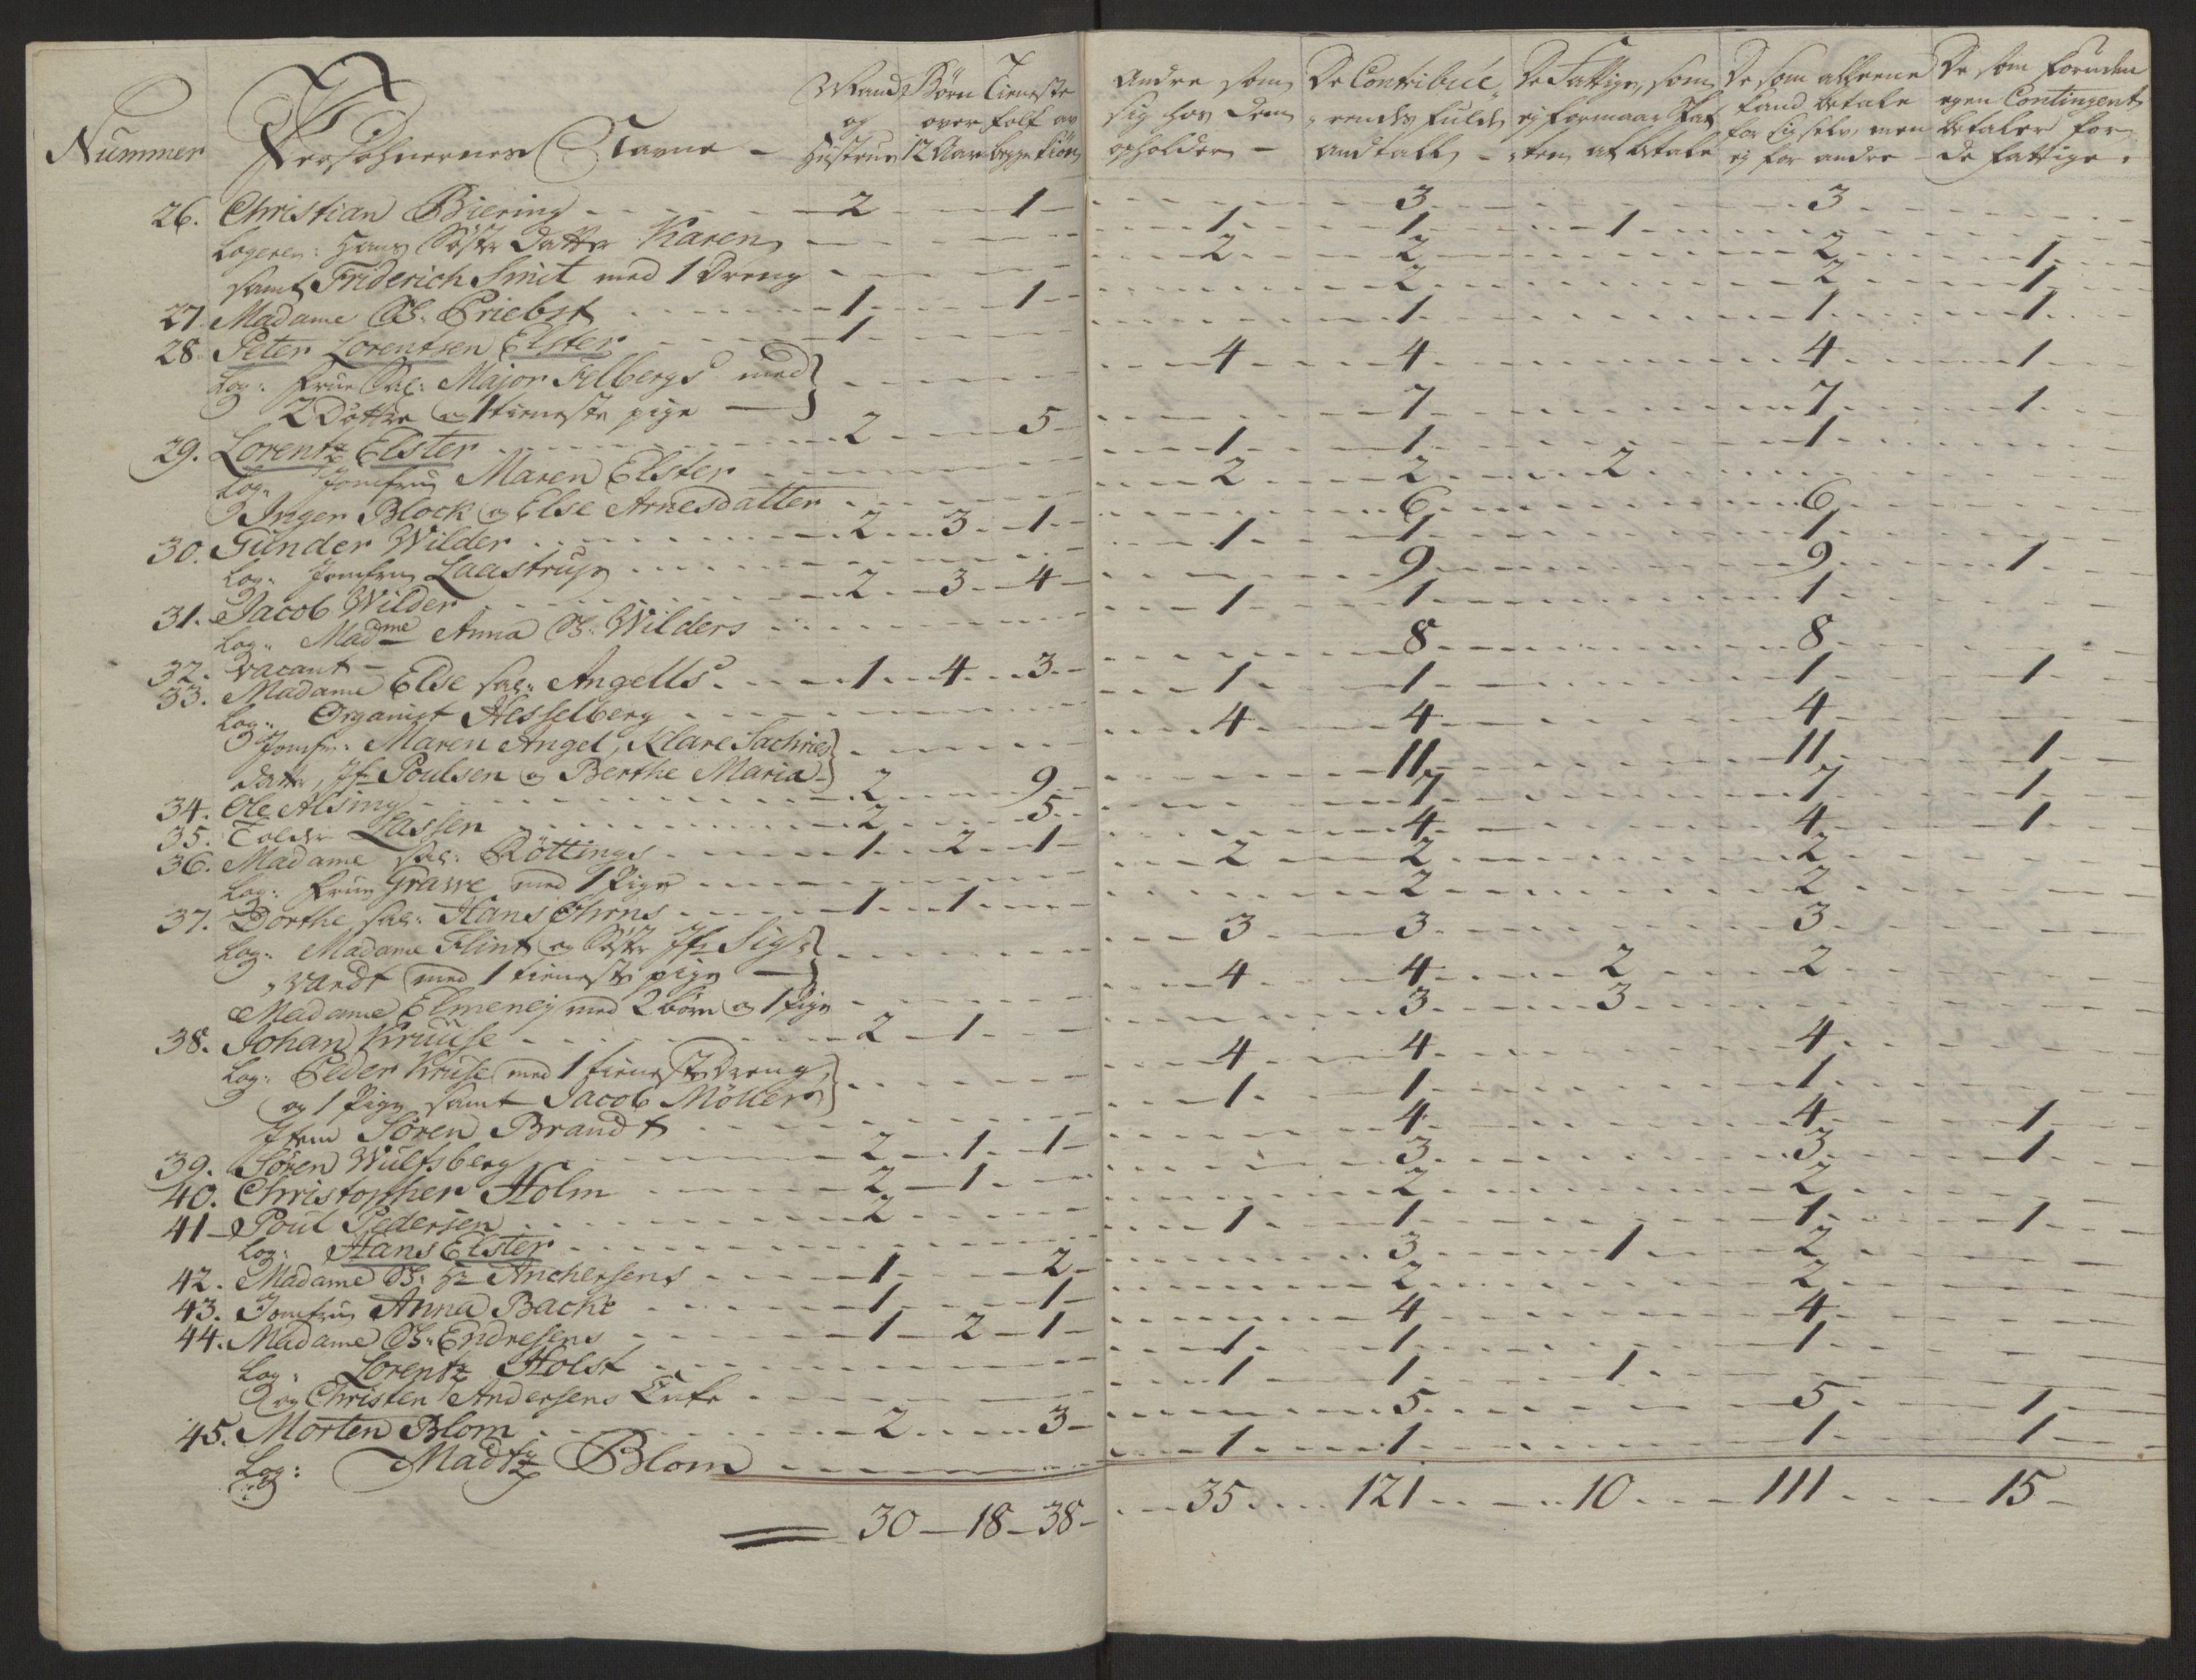 Nummer Persohnernes Navne - Mand og Hustrue Børn over 12 Aar Tieneste folk av begge kiön Andre som sig hos dem opholder - De Contribuerendes fulde Andtall - De Fattige, som ej formaar Skatten at betale De som alleene kand betale for sig selv, men ej for andre - De som foruden egen Contingent betaler for de fattige.
26. Christian Biering - 2 - 1 - 3 - 3
Logerer: Hans Søster datter Karen - 1 - 1 - 1
samt Friderich Smit med 1 Dreng - 2 - 2 - 2 - 1
27. Madame S. Priebst - 1 - 1 - 2 - 2 - 1
28. Peter Lorentsen Elster - 1 - 1 - 1 - 1
Log: Frue Sal: Major Filbergs med
2 Døttre og 1 tieneste pige - 4 - 4 - 4 - 1
29. Lorentz Elster - 2 - 5 - 7 - 7 - 1
Log: Jomfru Maren Elster - 1 - 1 - 1
Inger Block og Else Arnesdatter - 2 - 2 - 2
30. Gunder Wilder - 2 - 3 - 1 - 6 - 6
Log: Jomfru Laastrup - 1 - 1 - 1
31. Jacob Wilder - 2 - 3 - 4 - 9 - 9 - 1
Log: Madme Anna S. Wilders - 1 - 1 - 1
32. vacant -
33. Madame Else sal: Angells - 1 - 4 - 3 - 8 - 8
Log: Organist Hesselberg - 1 - 1 - 1 - 1
Jomfr: Maren Angel, Klare Sachries
datter, Jfr Poulsen og Berthe Maria - 4 - 4 - 4
34. Ole Alsing - 2 - 9 - 11 - 11 - 1
35. Tolder Lassen - 2 - 5 - 7 - 7 - 1
36. Madame sal: Röttings - 1 - 2 - 1 - 4 - 4 - 1
Log: Frue Grawe med 1 Pige - 2 - 2 - 2
37. Dorthe sal: Hans Ehrns - 1 - 1 - 2 - 2
Log: Madame Flint og Søster Jfr Sig-
vardt med 1 tieneste pige - 3 - 3 - 3
Madame Elmenej med 2 børn og 1 Pige - 4 - 4 - 2 - 2
38. Johan Kruuse - 2 - 1 - 3 - 3
Log: Peder Kruse med 1 tieneste Dreng,
og 1 Pige samt Jacob Möller - 4 - 4 - 4
Item Sören Brandt - 1 - 1 - 1
39. Sören Wulfsberg - 2 - 1 - 1 - 4 - 4 - 1
40. Christopher Holm - 2 - 1 - 3 - 3 - 1
41 - Poul Pedersen - 2 - 2 - 2
Log: Hans Elster - 1 - 1 - 1 - 1
42. Madame S. Hr Anchersens - 1 - 2 - 3 - 1 - 2
43. Jomfru Anna Backe - 1 - 1 - 2 - 2
44. Madame S. Endresens - 1 - 2 - 1 - 4 - 4
Log: Lorentz Holst - 1 - 1 - 1
og Christen Andersens Enke - 1 - 1 - 1
45. Morten Blom - 2 - 3 - 5 - 5 - 1
Log: Madtz Blom - 1 - 1 - 1 - 1
30 - 18 - 38 - 35 - 121 - 10 - 111 - 15 -